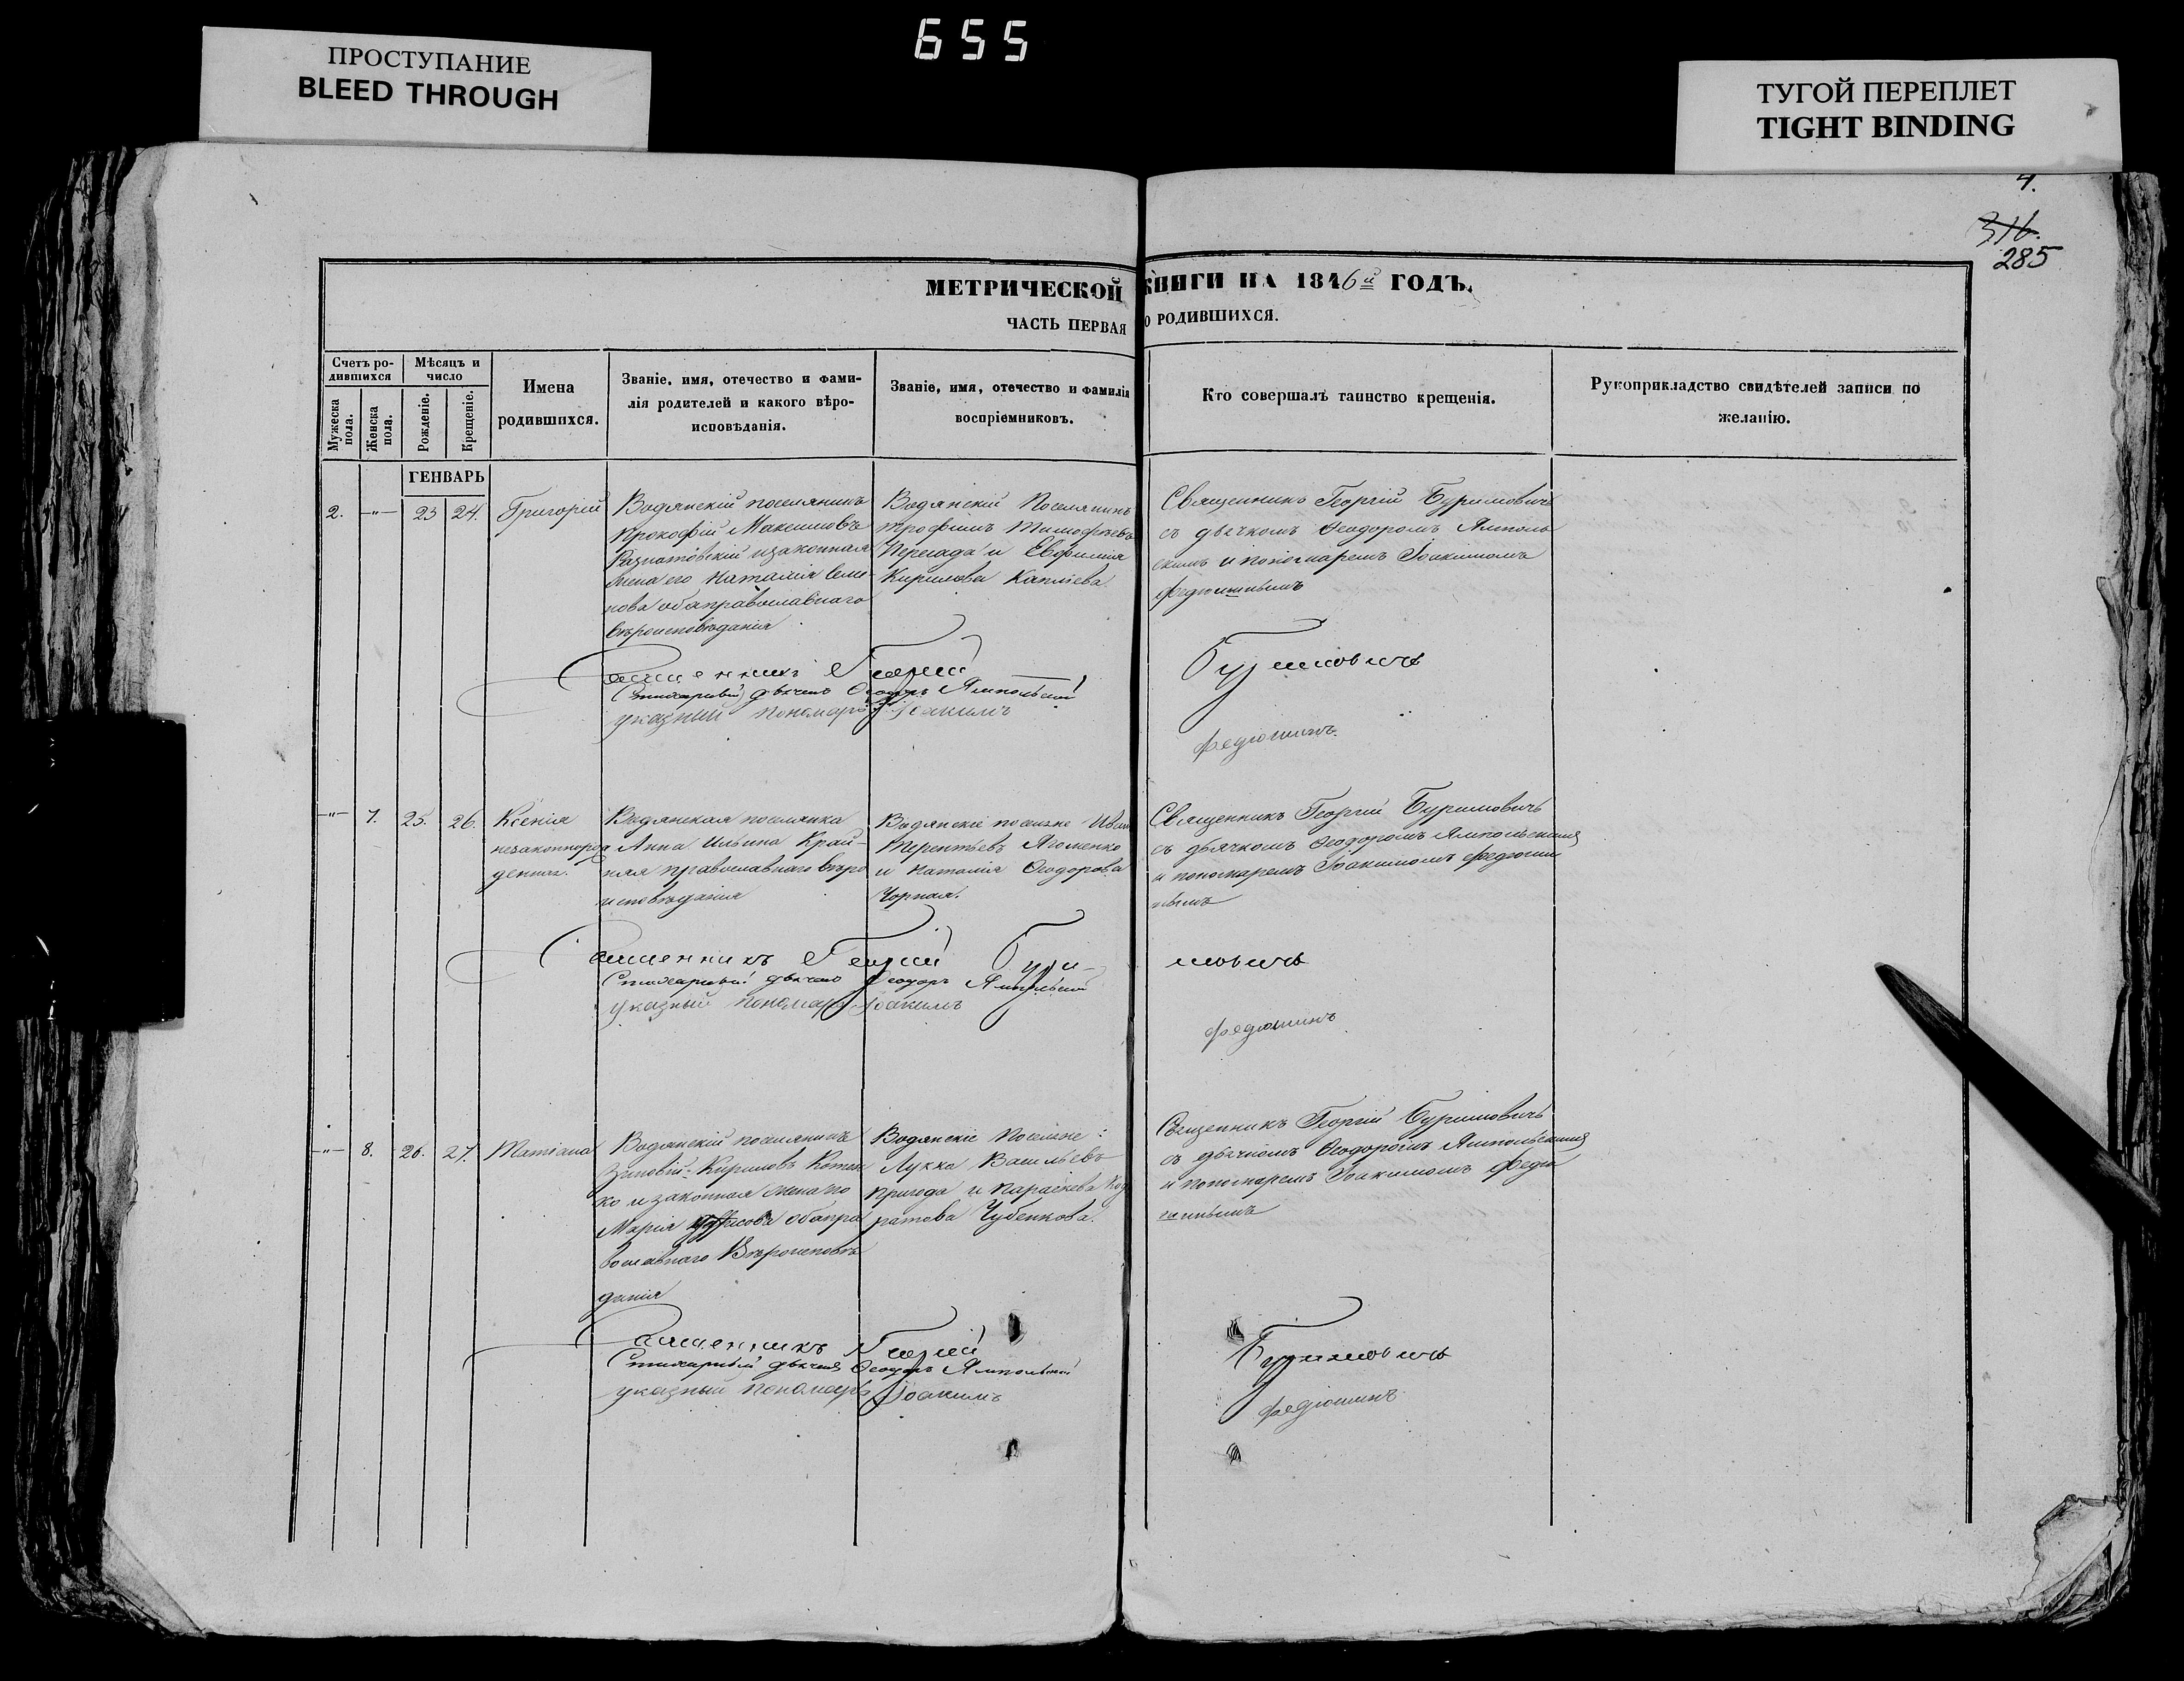 655
ПРОСТУПАНИЕ
BLEED THROUGH
ТУГОЙ ПЕРЕПЛЕТ
TIGHT BINDING
4.
316.
285
МЕТРИЧЕСКОЙ КНИГИ НА 1846й ГОДЪ.
ЧАСТЬ ПЕРВАЯ О РОДИВШИХСЯ.
Счетъ ро-
дившихся
Мужеска пола.
Женска пола.
Мѣсяцъ и
число
Рожденіе.
Крещеніе.
Имена
родившихся.
Званіе, имя, отечество и фами-
лія родителей и какого вѣро-
исповѣданія.
Званіе, имя, отечество и фамилія
воспріемниковъ.
Кто совершалъ таинство крещенія.
Рукоприкладство свидѣтелей записи по
желанію.
ГЕНВАРЬ
2. -"- 23 24. Григорій
Водянскій поселянинъ
Прокофій Максимовъ
и законная
жена его Наталія Семе-
нова оба православнаго
вѣроисповѣданія
Водянскій Поселянинъ
Трофимъ Тимофѣевъ
и Евфимія
Кирилова
Священникъ Георгій Буримовичъ
съ дьячкомъ Ѳеодоромъ Ямполь
скимъ и пономаремъ Іоакимомъ
Федюшинымъ
Священникъ Георгій Буримовичъ
Стихарный дьячекъ Ѳеодоръ Ямпольскій
указный пономарь Іоакимъ
Федюшинъ.
-"- 7. 25. 26. Ксенія
незаконнорож
денная.
Водянская поселянка
Анна Ильина Край-
няя православнаго вѣро
исповѣданія
Водянскіе поселяне Иван
Терентьевъ Ягоменко
и Наталія Ѳеодорова
Чорная.
Священникъ Георгій Буримовичъ
съ дьячкомъ Ѳеодоромъ Ямпольскимъ
и пономаремъ Іоакимомъ Федюши
нымъ
Священникъ Георгій Бури-
мовичъ
Стихарный дьячекъ Ѳеодоръ Ямпольскій
указный пономарь Іоакимъ
Федюшинъ
-"- 8. 26. 27. Татіана
Водянскій поселянинъ
Зиновій Кириловъ
ко и законная жена его
Марія оба пра
вославнаго Вѣроисповѣ
данія
Водянскіе Поселяне:
Лукка Васильевъ
Пригода и Параскева Код
ратова Чубенкова.
Священникъ Георгій Буримовичъ
съ дьячкомъ Ѳеодоромъ Ямпольскимъ
и пономаремъ Іоакимомъ Федю
шинымъ
Священникъ Георгій
Буримовичъ
Стихарный дьячекъ Ѳеодоръ Ямпольскій
указный пономарь Іоакимъ
Федюшинъ